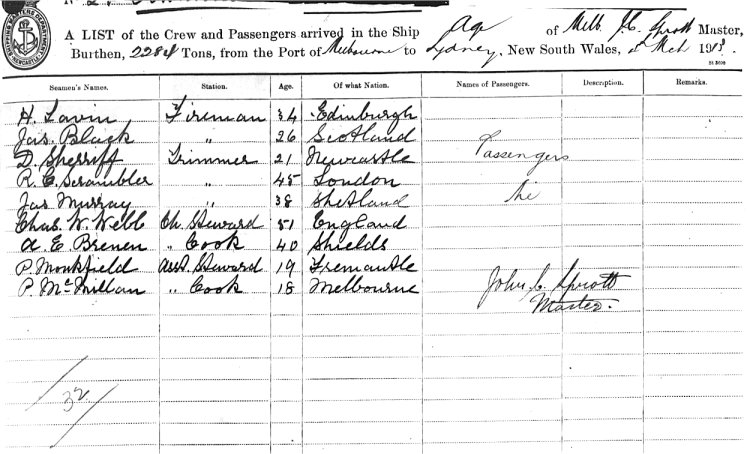 A LIST of the Crew and Passengers arrived in the Ship Age of Melb. J.C. Sprott Master,
Burthen, 2284 Tons, from the Port of Melbourne to Sydney, New South Wales, Mch 1913.
Seamen's Names. Station. Age. Of what Nation. Names of Passengers. Description. Remarks.
H. Lavin Fireman 34 Edinburgh
Jas. Black " 26 Scotland
D. Sherriff Trimmer 21 Newcastle Passengers
R. C. Scrambler " 45 London
Jas Murray " 38 Shetland Nil
Chas. W. Webb Ch. Steward 51 England
A. E. Brenen " Cook 40 Shields
P. Monkfield Asst. Steward 19 Fremantle
P. McMillan " Cook 18 Melbourne John. C. Sprott
Master.
32